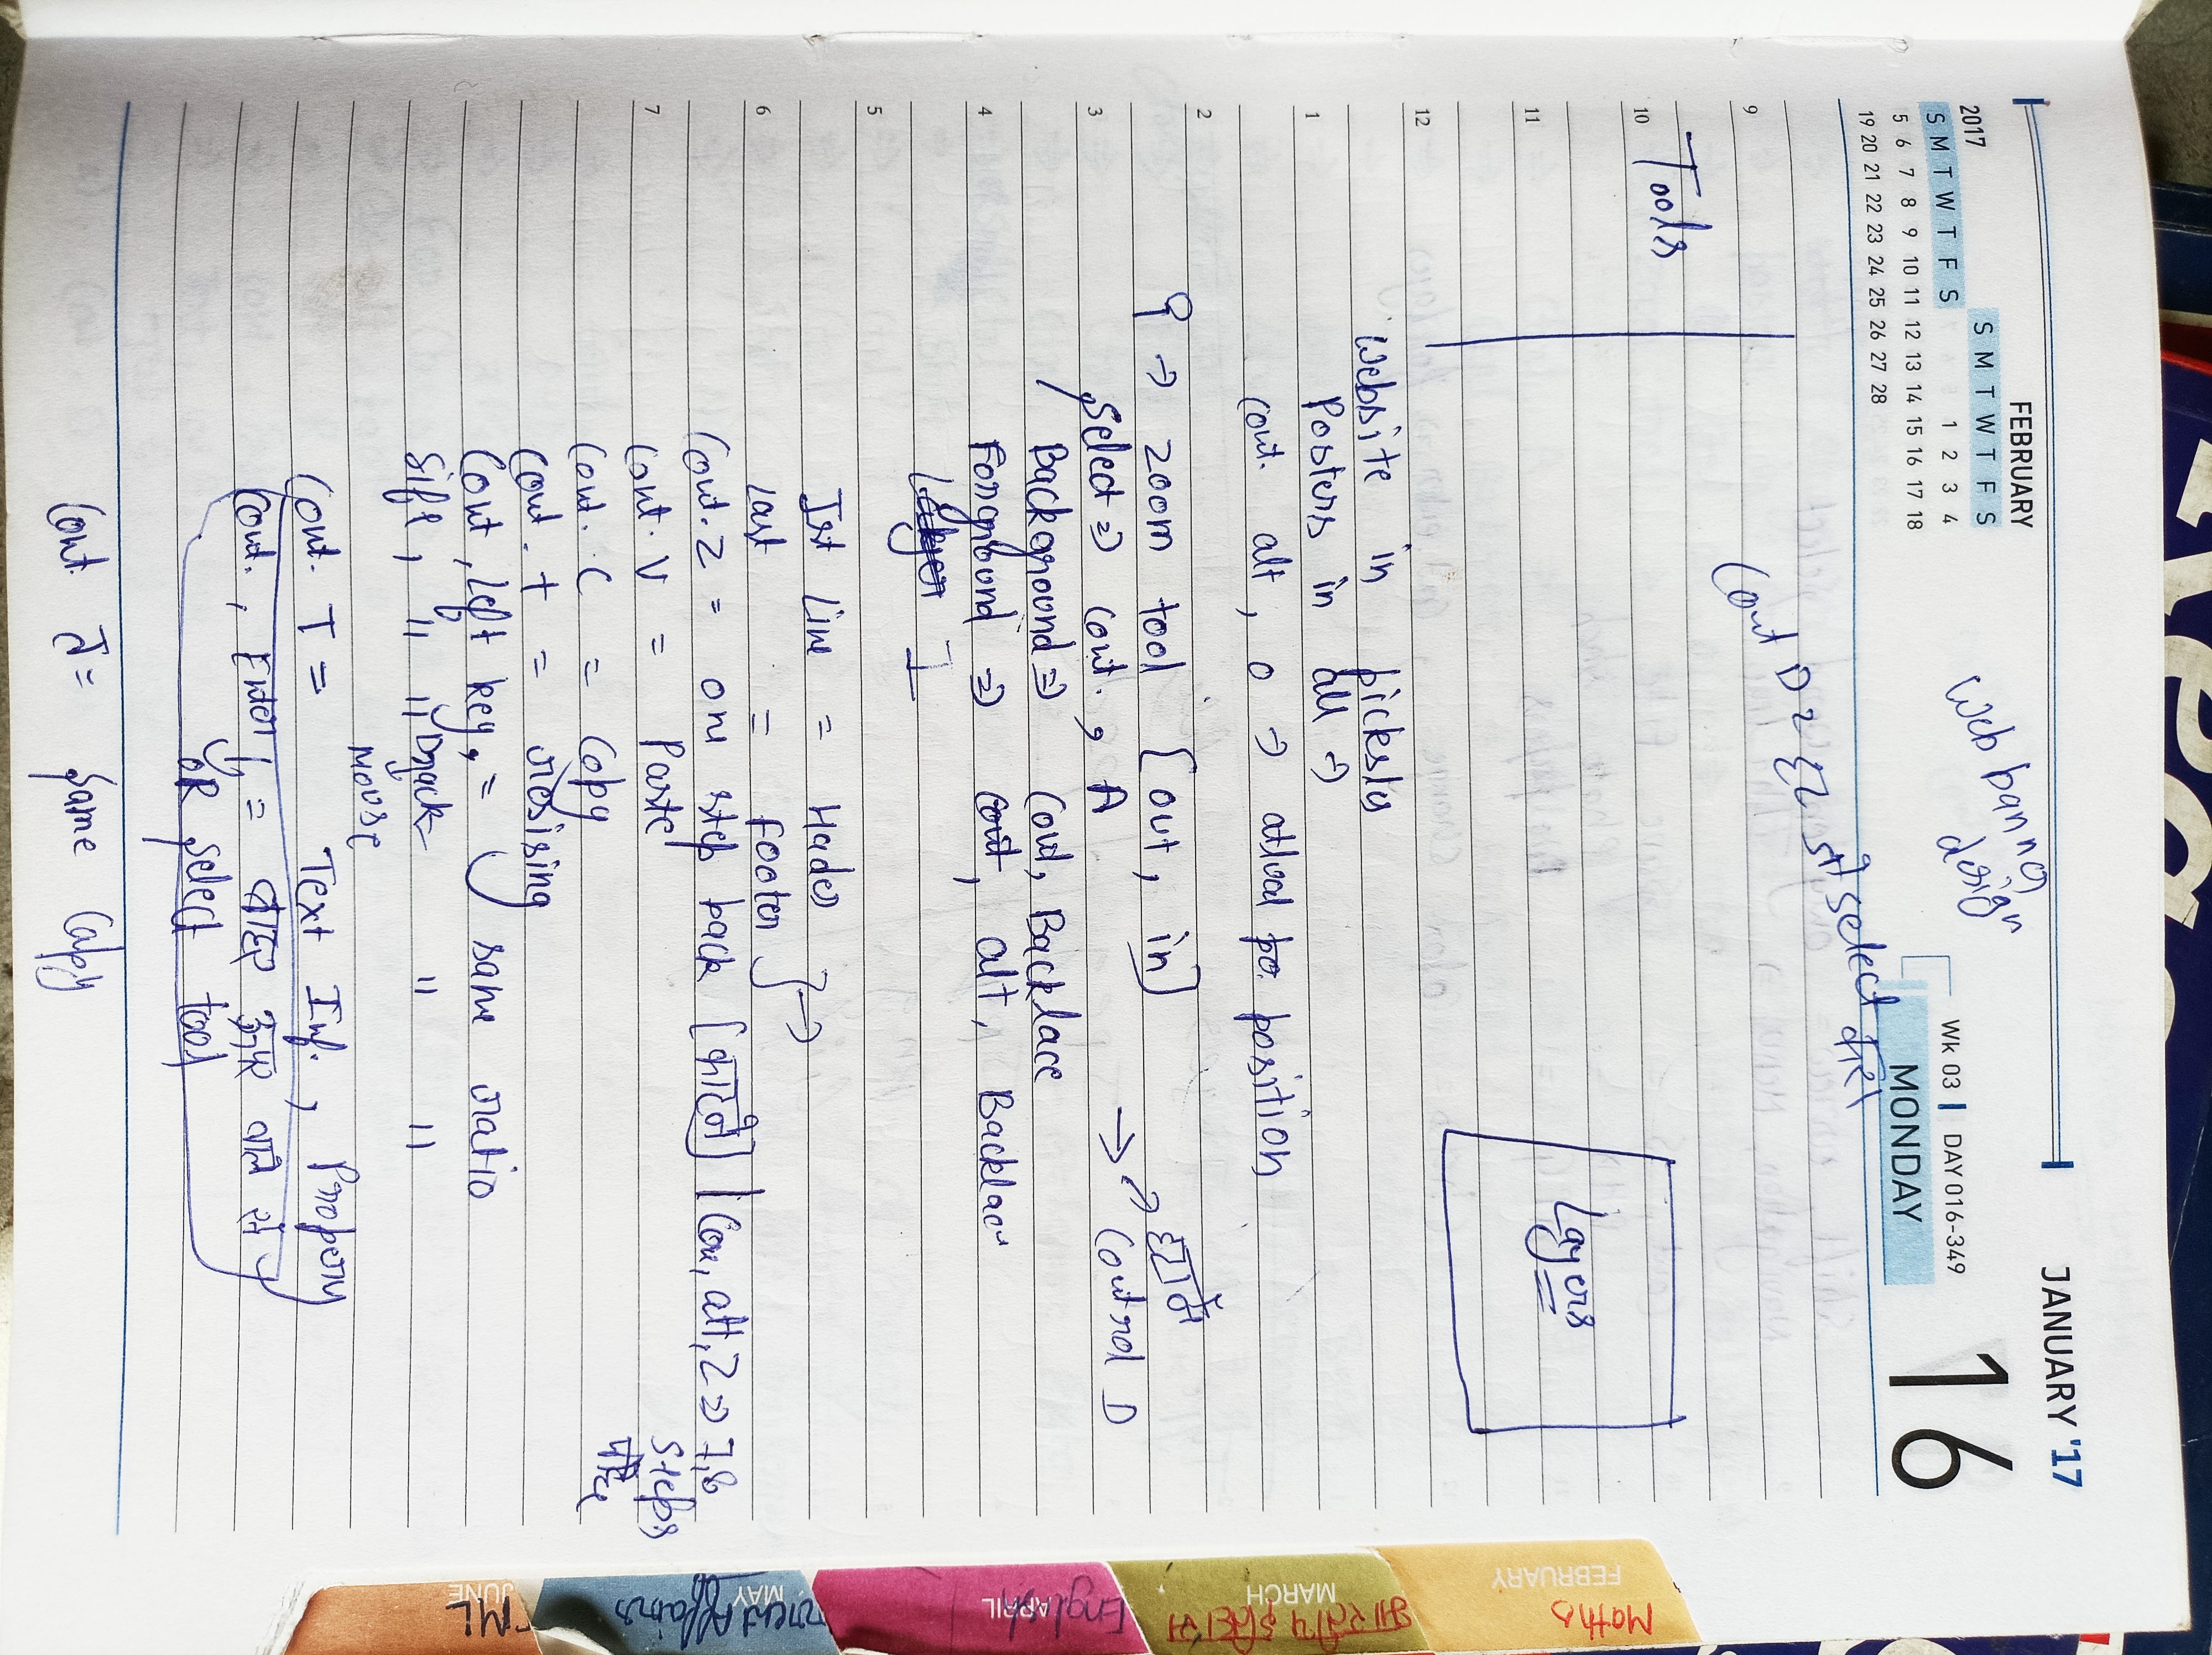 JANUARY '17
FEBRUARY
2017 S M T W T F S
S M T W T F S 1 2 3 4
5 6 7 8 9 10 11 12 13 14 15 16 17 18
19 20 21 22 23 24 25 26 27 28
Web banner
design
16
Wk 03 | DAY 016-349
MONDAY
Cont D = select करा
9
Tools
10
Layers
11
12
Website in picksls
1 Posters in all ⇒
cont. alt, 0 ⇒ atlual po. position
2
⇒ Zoom tool [out, in] → हटाने
3 Select ⇒ cont. , A → Control D
Background ⇒ Cout, Backlace
4 Forground ⇒ cout, alt, Backlace
Layer I
5
Ist Line = Hader
6 Last = Footer
Cont. Z = one step back [काटने] | Con, alt, Z ⇒ 7,8
steps
7 Cont. V = Paste
Cont. C = Copy
Cont. t = resising
Cont, Left key, = same ratio
Sift, " " Drack " "
Mouse
Cont. T = Text Inf. , Propery
Cont. , Enter = बाहर ऊपर वाले से
OR select tool
Cont. J = Same Capy
Maths
FEBRUARY
भारतीय इतिहास
MARCH
English
APRIL
Current Affairs
MAY
JUNE